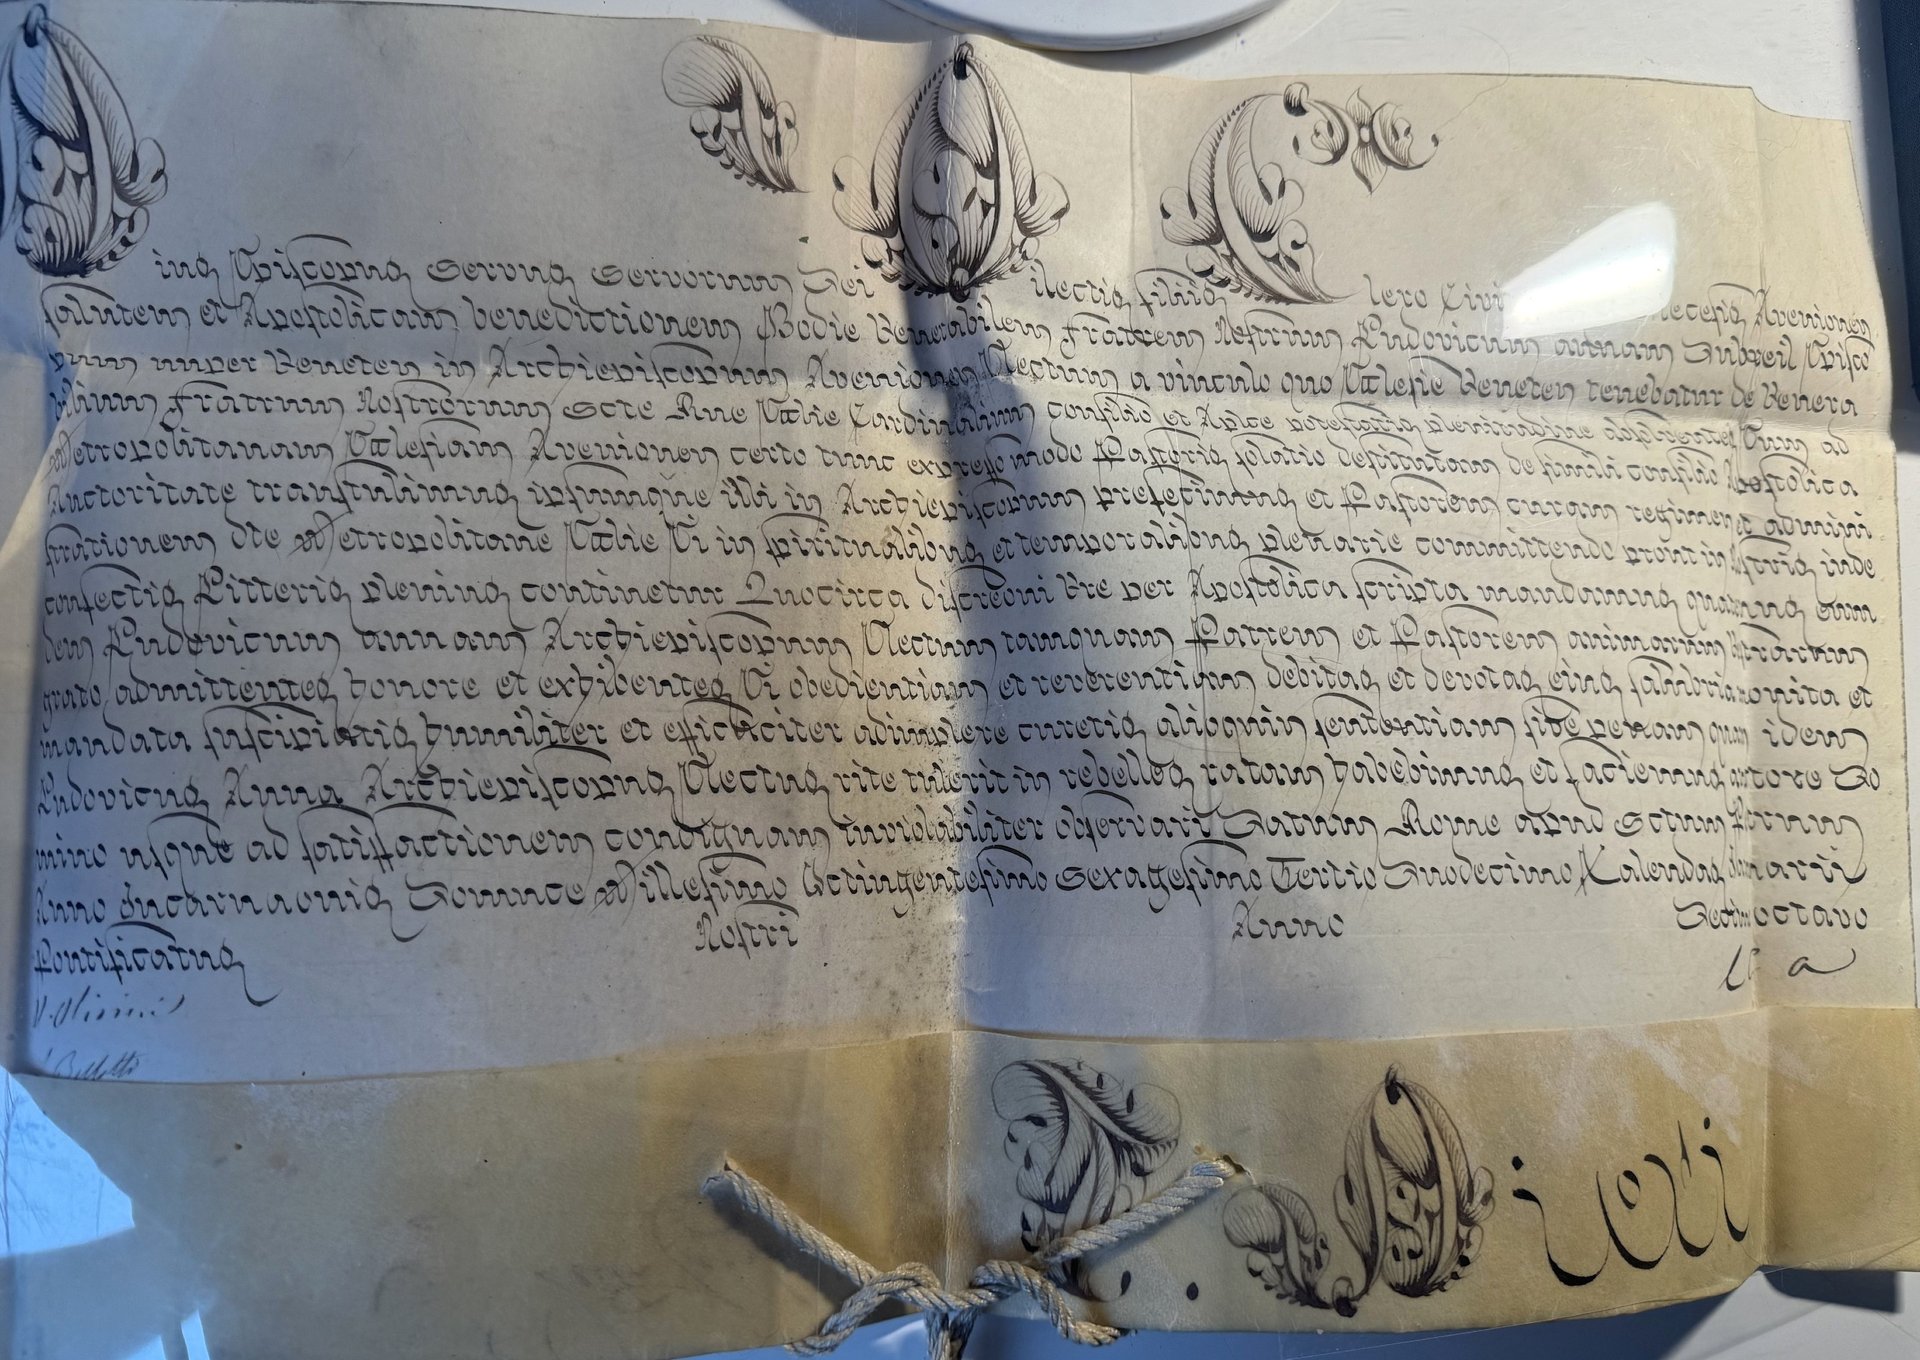 Pius Episcopus Servus Servorum Dei Dilectis filiis Clero Civi lecesis Avenionen
salutem et Apostolicam benedictionem Hodie Venerabilem Fratrem Nostrum Ludovicum annam Dubreil Episco
pum nuper Veneten in Archiepiscopum Avenionen Electum a vinculo quo Ecclesie Veneten tenebatur de Venera
bilium Fratrum Nostrorum Scte Rne Ecclie Cardinalium consilio et Aplce potestatis plenitudine absolventes Eum ad
Metropolitanam Ecclesiam Avenionen certo tunc expresso modo Pastoris solatio destitutam de simili consilio Apostolica
Auctoritate transtulimus ipsumque illi in Archiepiscopum prefecimus et Pastorem curam regimen et admini
strationem dte Metropolitane Ecclie Ei in spiritualibus et temporalibus plenarie committendo prout in Nostris inde
confectis Litteris plenius continetur Quocirca discreoni Vre per Apostolica scripta mandamus quatenus eum
dem Ludovicum annam Archiepiscopum Electum tamquam Patrem et Pastorem animarum Vestrarum
grato admittentes honore et exhibentes Ei obedientiam et reverentiam debitas et devotas eius salubria monita et
mandata suscipiatis humiliter et efficaciter adimplere curetis alioquin sententiam sive penam quam idem
Ludovicus Anna Archiepiscopus Electus rite tulerit in rebelles ratam habebimus et faciemus auctore Do
mino usque ad satisfactionem condignam inviolabiliter observari Datum Rome apud Sctum Petrum
Anno Incarnaonis Dominice Millesimo Octingentesimo Sexagesimo Tertio Duodecimo Kalendas Januarii
Pontificatus Nostri Anno Decimooctavo